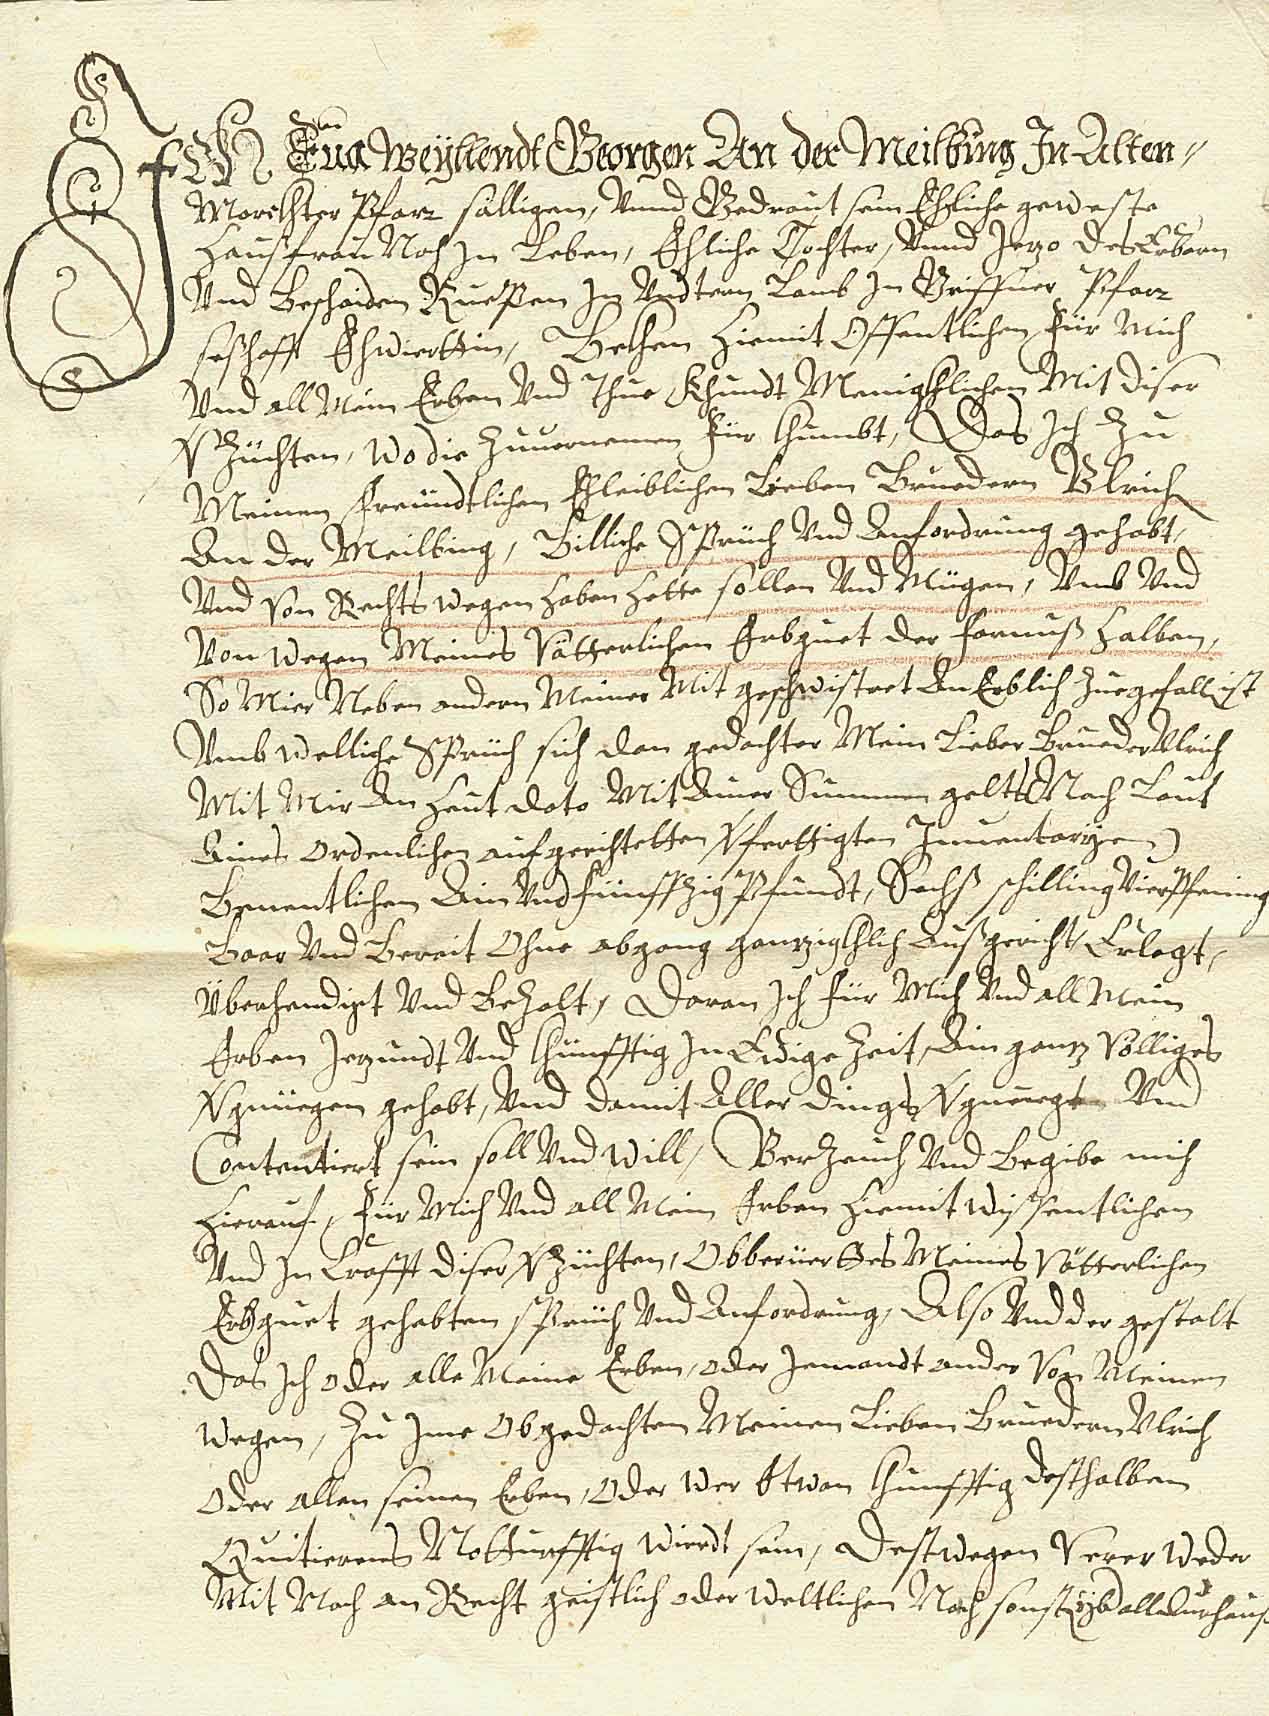 Ich Eua Weyllendt Georgen An der Meilbing In Alten=
Morckhter Pfarr sälligen, Vnnd Gedraut sein Ehliche geweste
Haußfrau Noch In Leben, Ehliche Tochter, Vnnd Jezo des Erbarn
Vnd Beschaiden In Vndtern Laub In Pfarr
seßhafft Ehwierttin, Bekhen Hiemit Offentlichen Für Mich
Vnd all Mein Erben Vnd Thue Khundt Menigkhlichen Mit diser
Vzüchten, Wo die Zuuernemen Für khumbt, Das Ich Zu
Meinen freündtlichen Ehleiblichen Lieben Bruedern Vlrich
An der Meilbing, Billiche Sprüch Vnd Anfordrung gehabt,
Vnd Von Rechts wegen Haben Hette sollen Vnd Mügen, Vmb Vnd
Von wegen Meines Vätterlichen Erbguet der Farnuß Halben,
So Mier Neben andern Meiner Mit geschwistret An Erblich Zuegefall ist
Vmb Welliche Sprüch sich dan gedachter Mein Lieber Brueder Vlrich
Mit Mir An Heut dato Mit Ainer Summen gelts (Nach Laut
Aines Ordenlichen aufgerichtetten Vferttigten Inuentaryen)
Benentlichen Ain Vnd Fünffzig Pfundt, Sechß schilling Vier Pfening
Baar Vnd Bereit Ohne abgang ganzigkhlich Außgericht, Erlegt,
Überhendigt Vnd Bezalt, Daran Ich Für Mich Vnd all Mein
Erben Jezundt Vnd khünfftig In Ewige Zeit, Ain ganz Völliges
Vgnüegen gehabt, Vnd damit Aller dings Vgnuegt Vnd
Contentiert sein soll Vnd Will, Verzeuch Vnd Begibe mich
Hierauf, Für Mich Vnd all Mein Erben Hiemit Wissentlichen
Vnd In Crafft diser Vzüchten, Obberüertes Meines Vätterlichen
Erbguet gehabten sprüch Vnd Anfordrung, Also Vnd der gestalt
Das Ich oder alle Meine Erben, oder Jemandt ander Von Meinen
Wegen, Zu Ime Obgedachten Meinen Lieben Bruedern Vlrich
Oder allen seinen Erben, Oder Wer Etwan khünfftig desthalben
Quitierens Notturfftig Wierdt sein, Destwegen Verer Weder
Mit Noch an Recht geistlich oder Weltlichen Noch sonst